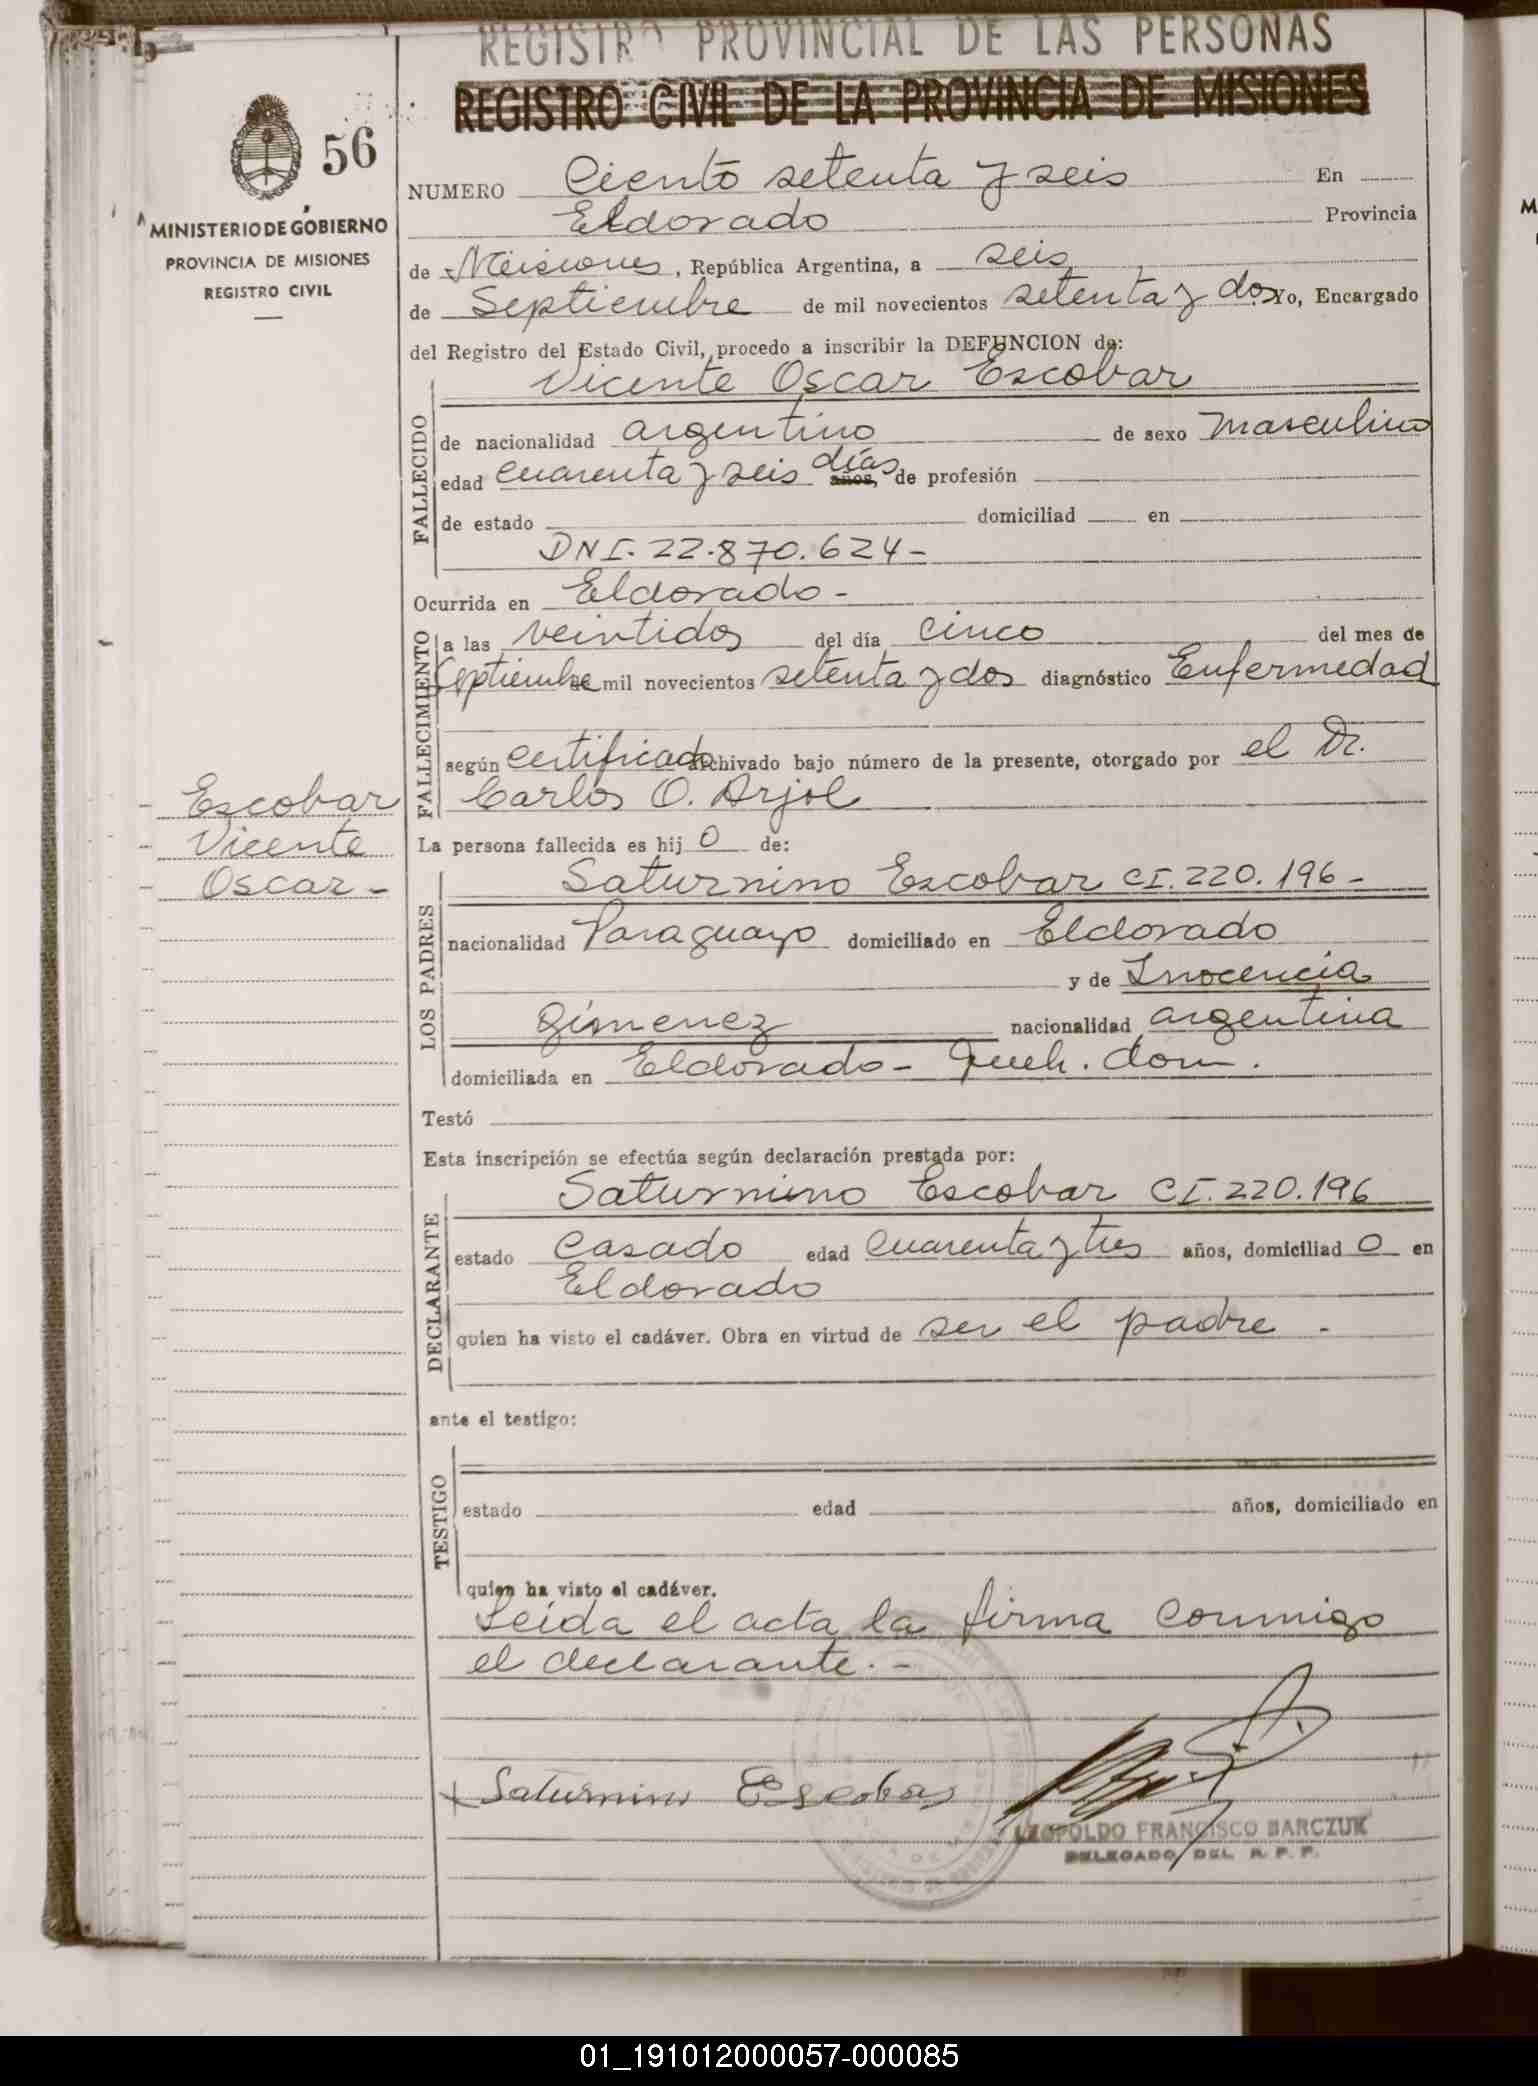 REGISTRO PROVINCIAL DE LAS PERSONAS
REGISTRO CIVIL DE LA PROVINCIA DE MISIONES
56
MINISTERIO DE GOBIERNO
PROVINCIA DE MISIONES
REGISTRO CIVIL
NUMERO Ciento setenta y seis En
Eldorado Provincia
de Misiones, República Argentina, a seis
de Septiembre de mil novecientos setenta y dos Yo, Encargado
del Registro del Estado Civil, procedo a inscribir la DEFUNCION de:
Vicente Oscar Escobar
FALLECIDO
de nacionalidad argentino de sexo masculino
edad cuarenta y seis días años, de profesión
de estado domiciliad en
DNI. 22.870.624-
Ocurrida en Eldorado-
FALLECIMIENTO
a las veintidos del día cinco del mes de
Septiembre de mil novecientos setenta y dos diagnóstico Enfermedad
según certificado archivado bajo número de la presente, otorgado por el Dr.
Carlos O. Arjol
Escobar
Vicente
Oscar-
La persona fallecida es hij o de:
LOS PADRES
Saturnino Escobar CI.220.196-
nacionalidad Paraguayo domiciliado en Eldorado
y de Inocencia
Gímenez nacionalidad argentina
domiciliada en Eldorado- Queh. dom.
Testó
Esta inscripción se efectúa según declaración prestada por:
DECLARANTE
Saturnino Escobar CI.220.196
estado Casado edad cuarenta y tres años, domiciliad o en
Eldorado
quien ha visto el cadáver. Obra en virtud de ser el padre -
ante el testigo:
TESTIGO
estado edad años, domiciliado en
quien ha visto el cadáver.
Leída el acta la firma conmigo
el declarante.-
Saturnino Escobar
LEOPOLDO FRANCISCO BARCZUK
DELEGADO DEL R. P. P.
01_191012000057-000085